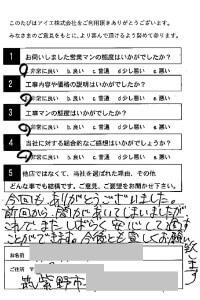 このたびはアイエ株式会社をご利用頂きありがとうございます。
みなさまのご意見をもとに、より喜んで頂けるよう努めて参ります。
1 お伺いしました営業マンの態度はいかがでしたか？
a 非常に良い b.良い c 普通 d 少し悪い e 悪い
2 工事内容や価格の説明はいかがでしたか？
a 非常に良い b.良い c 普通 d 少し悪い e 悪い
3 工事マンの態度はいかがでしたか？
a 非常に良い b.良い c 普通 d 少し悪い e 悪い
4 当社に対する総合的なご感想はいかがでしょうか？
a 非常に良い b.良い c 普通 d 少し悪い e 悪い
5 他店ではなくて、当社を選ばれた理由、その他
どんな事でも結構です。ご意見、ご要望をお聞かせ下さい。
今回もありがとうございました。
前回から、間があいてしまいましたが
これでまたしばらく安心して過す
ことができます。今後とも宜しくお願い
致します
お名前
ご住所
筑紫野市